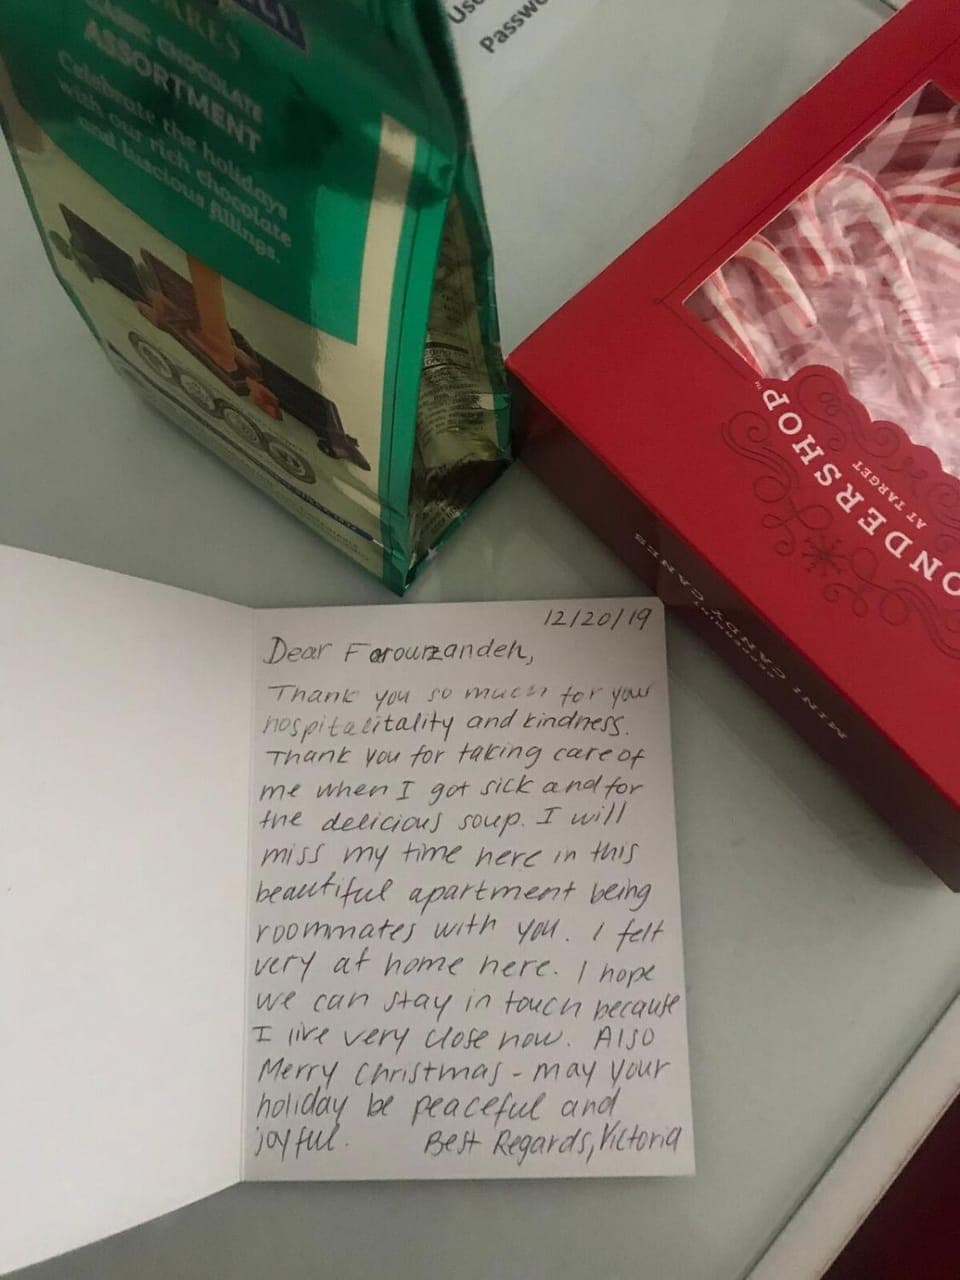 ARES
CHOCOLATE
ASSORTMENT
Celebrate the holidays
with our rich chocolate
and luscious fillings.
Use
Passwo
ONDERSHOP™
AT TARGET
PEPPERMINT
MINI CANDY CANES
12/20/19
Dear Forourzandeh,
Thank you so much for your
hospitalitality and kindness.
Thank you for taking care of
me when I got sick and for
the delicious soup. I will
miss my time here in this
beautiful apartment being
roommates with you. I felt
very at home here. I hope
we can stay in touch because
I live very close now. Also
Merry Christmas - may your
holiday be peaceful and
joyful. Best Regards, Victoria